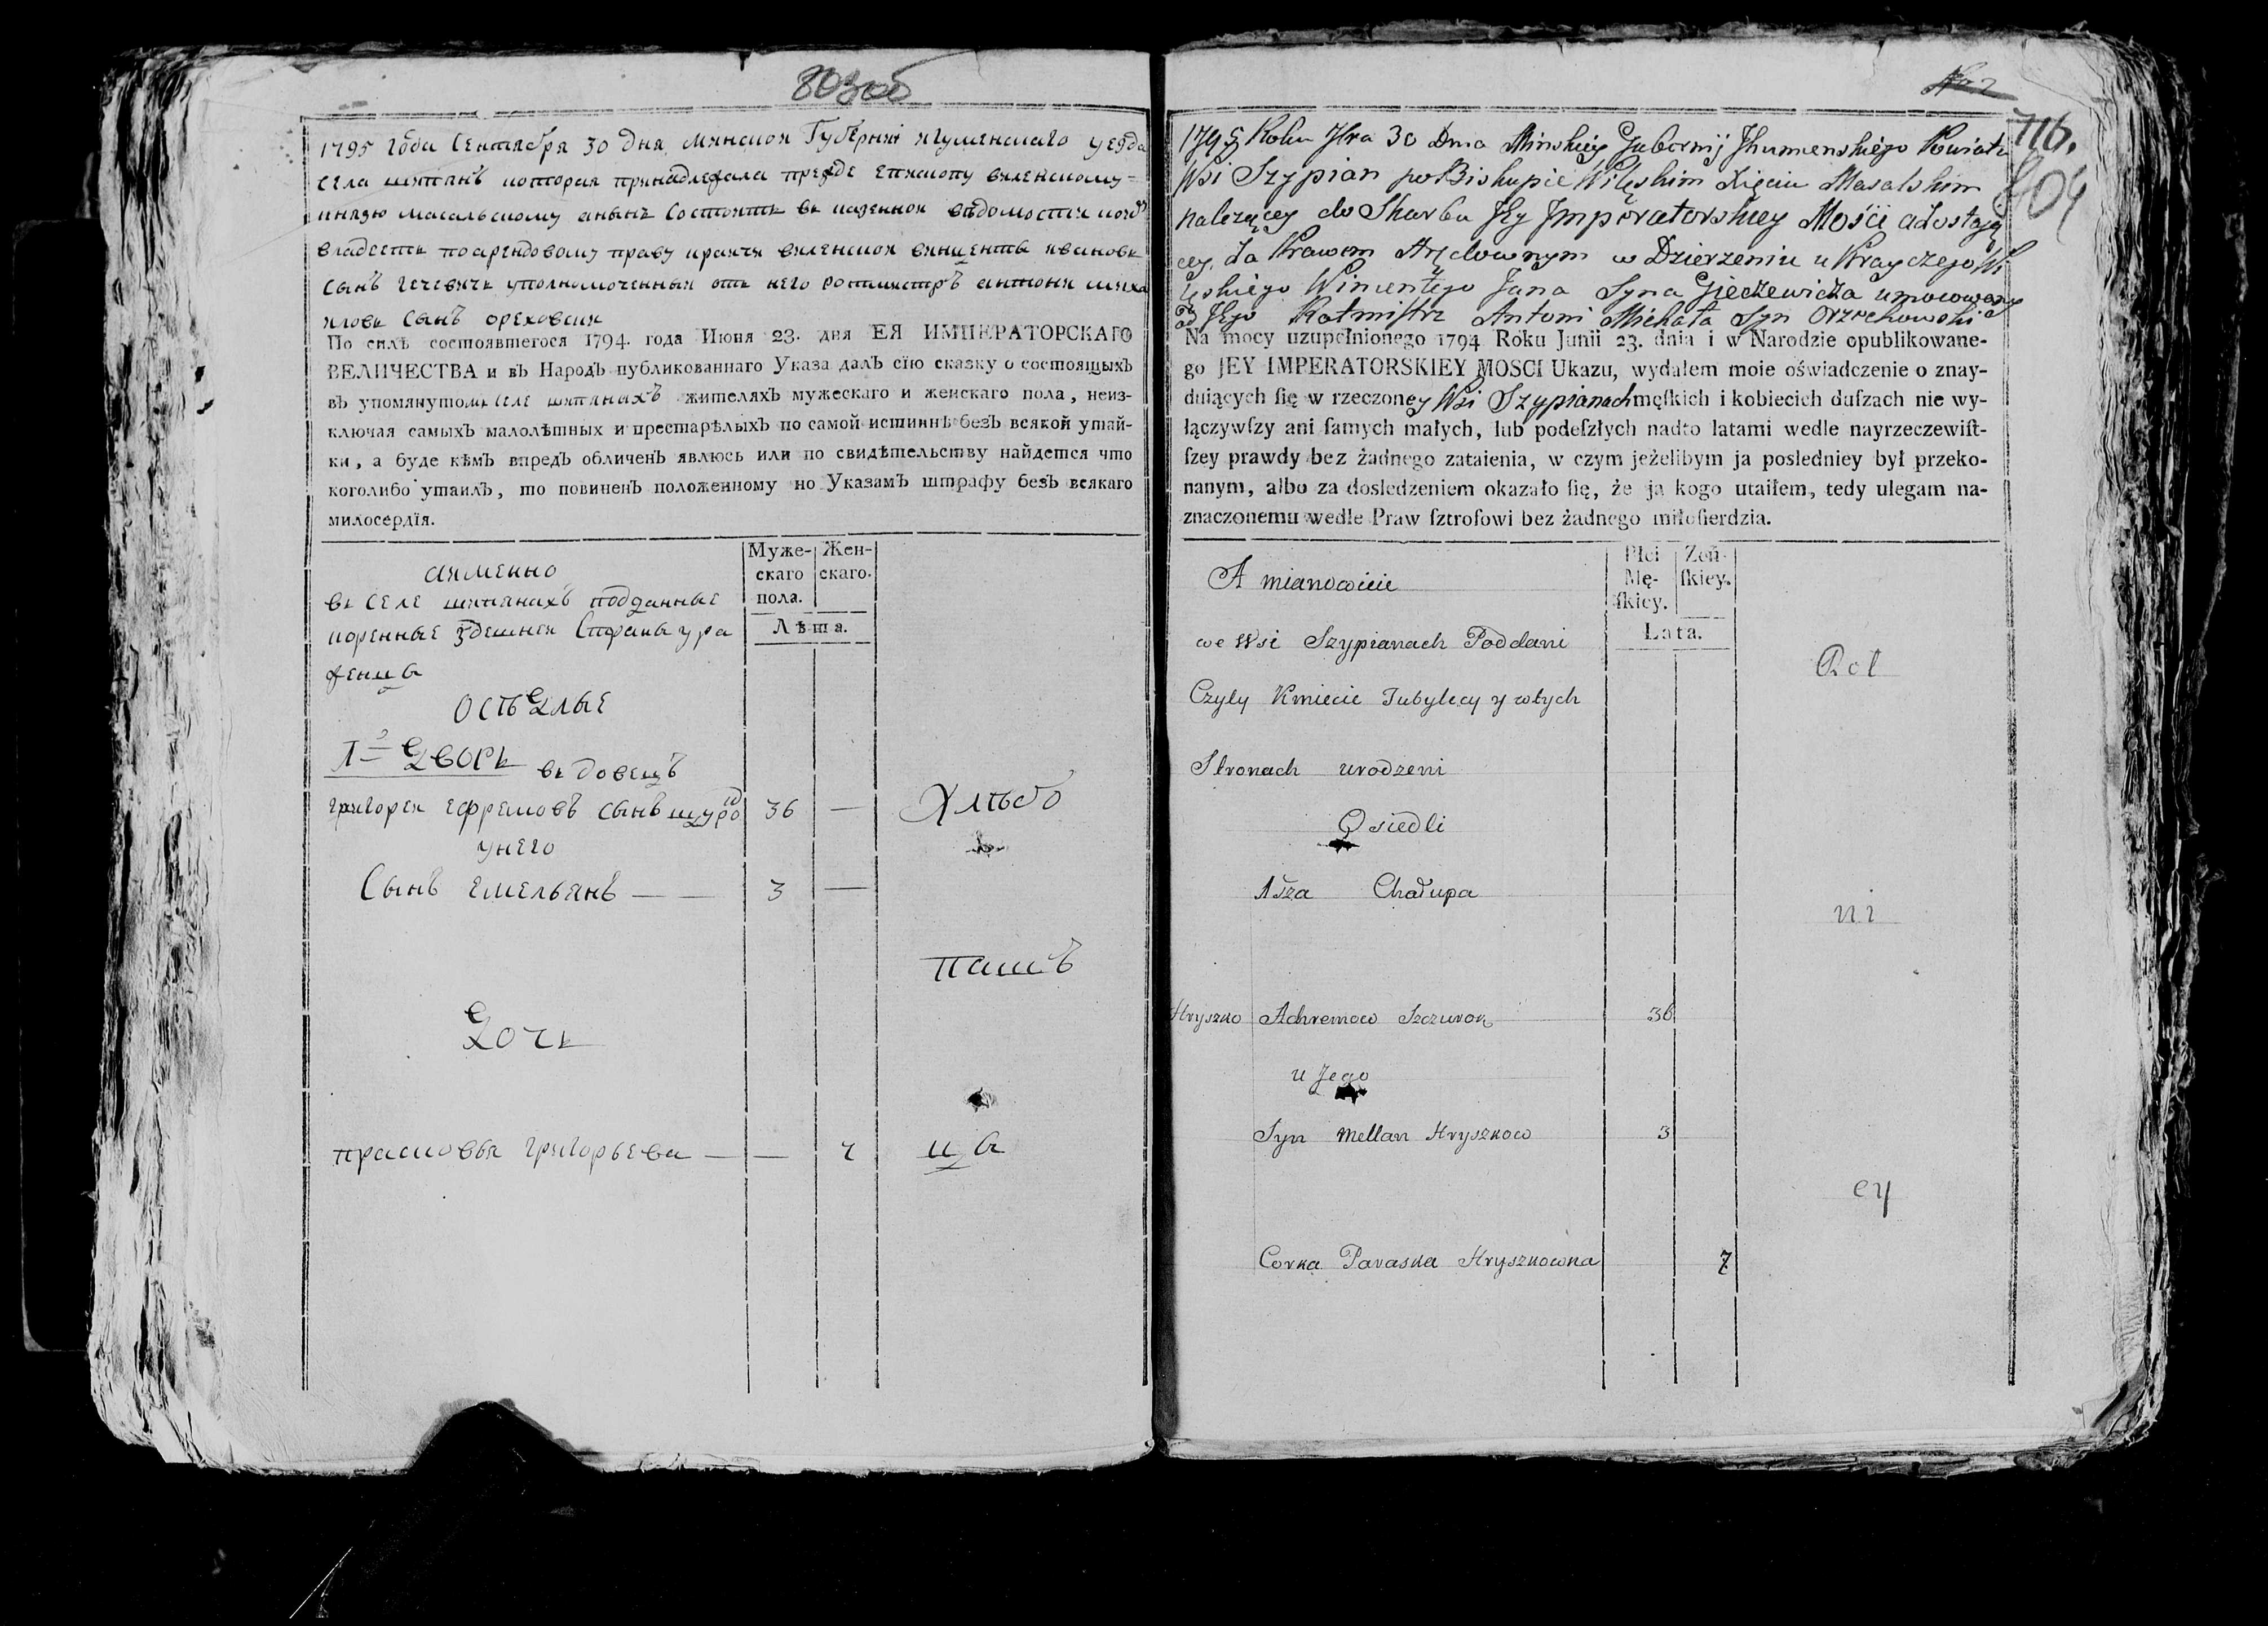 803об
1795 года Сентября 30 дня минской Губернiи игуменскаго уезда
села шипянъ которая принадлежала прежде епископу виленскому
князю масальскому анынъ состоитъ въ казенной ведомости коею
владеетъ поарендовому праву крайчи виленской винценты ивановъ
сынъ гечевичъ уполномоченный отъ него ротмистръ антони миха
иловъ сынъ ореховски
По силѣ состоявшегося 1794. года Июня 23. дня ЕЯ ИМПЕРАТОРСКАГО
ВЕЛИЧЕСТВА и въ Народъ публикованнаго Указа далъ сїю сказку о состоящыхъ
въ упомянутомъ селе шипянахъ жителяхъ мужескаго и женскаго пола, неиз-
ключая самыхъ малолѣтныхъ и престарѣлыхъ по самой истиннѣ безъ всякой утай-
ки, а буде кѣмъ впредъ обличенъ явлюсь или по свидѣтельству найдется что
коголибо утаилъ, то повиненъ положенному по Указамъ штрафу безъ всякаго
милосердїя.
Муже-скаго пола. Жен-скаго.
Лѣта.
аименно
въ селе шипянахъ подданные
коренные здешней Страны уро
женцы
оседлые
1й дворъ вдовецъ
григорей ефремовъ сынъ щурок 36 — хлебо
унего
Сынъ емельянъ — 3 —
пашъ
дочь
прасковья григорьева — — 7 цы
716.
804
1795 Roku 7bra 30 Dnia Minskiey Gubernij Jhumenskiego Powiatu
Wsi Szypian po Biskupie Wileskim Xięciu Masalskim
należącey do Skarbu Jey Jmperatorskiey Mości a dostają
cey za Prawem Arędownym w Dzierzeniu u Krayczego Wi
leskiego Wincentego Jana Syna Gieczewicza umocowany
od Jego Rotmistrz Antoni Michała Syn Orzechowski
Na mocy uzupełnionego 1794 Roku Junii 23. dnia i w Narodzie opublikowane-
go JEY IMPERATORSKIEY MOSCI Ukazu, wydałem moie oświadczenie o znay-
duiących ſię w rzeczoney Wsi Szypianach męſkich i kobiecich duſzach nie wy-
łączywſzy ani ſamych małych, lub podeſzłych nadto latami wedle nayrzeczewiſt-
ſzey prawdy bez żadnego zataienia, w czym jeżelibym ja posledniey był przeko-
nanym, albo za dosledzeniem okazało ſię, że ja kogo utaiłem, tedy ulegam na-
znaczonemu wedle Praw ſztrofowi bez żadnego miłoſierdzia.
Płci Mę-ſkiey. Żeń-ſkiey.
Lata.
A mianowicie
we Wsi Szypianach Poddani
Rol
Czyly Kmiecie Tubylecy y wtych
Stronach urodzeni
Osiedli
1sza Chałupa
ni
Hryszko Achremow Szczurok 36
u Jego
Syn Mellan Hryszkow 3
cy
Corka Paraska Hryszkowna 7